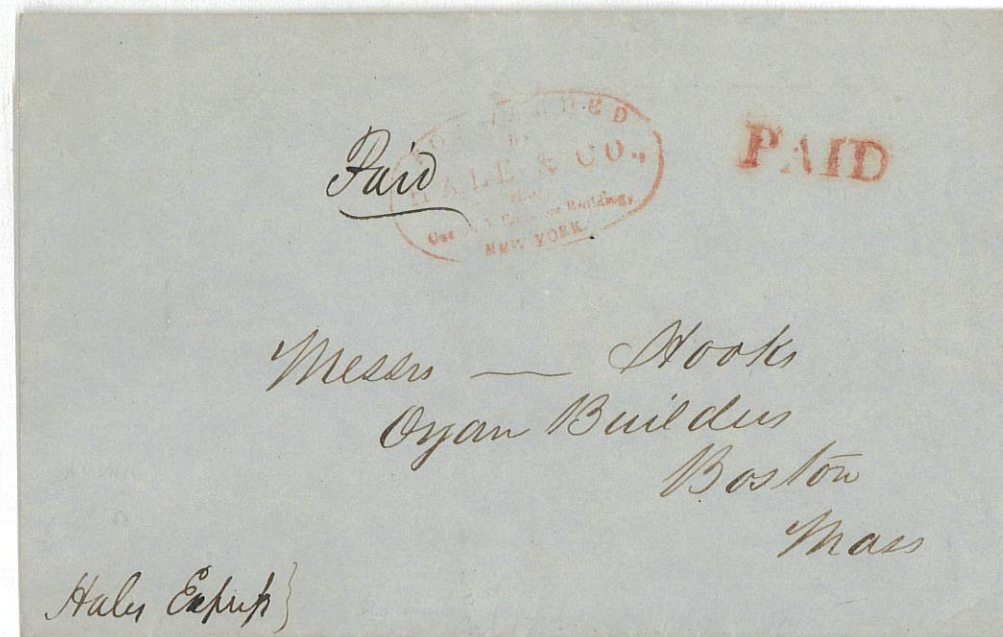 FORWARDED
by
HALE & CO.,
from
Buildings,
NEW-YORK.
PAID
Paid
Messrs — Hooks
Organ Builders
Boston
Mass
Hales Express }